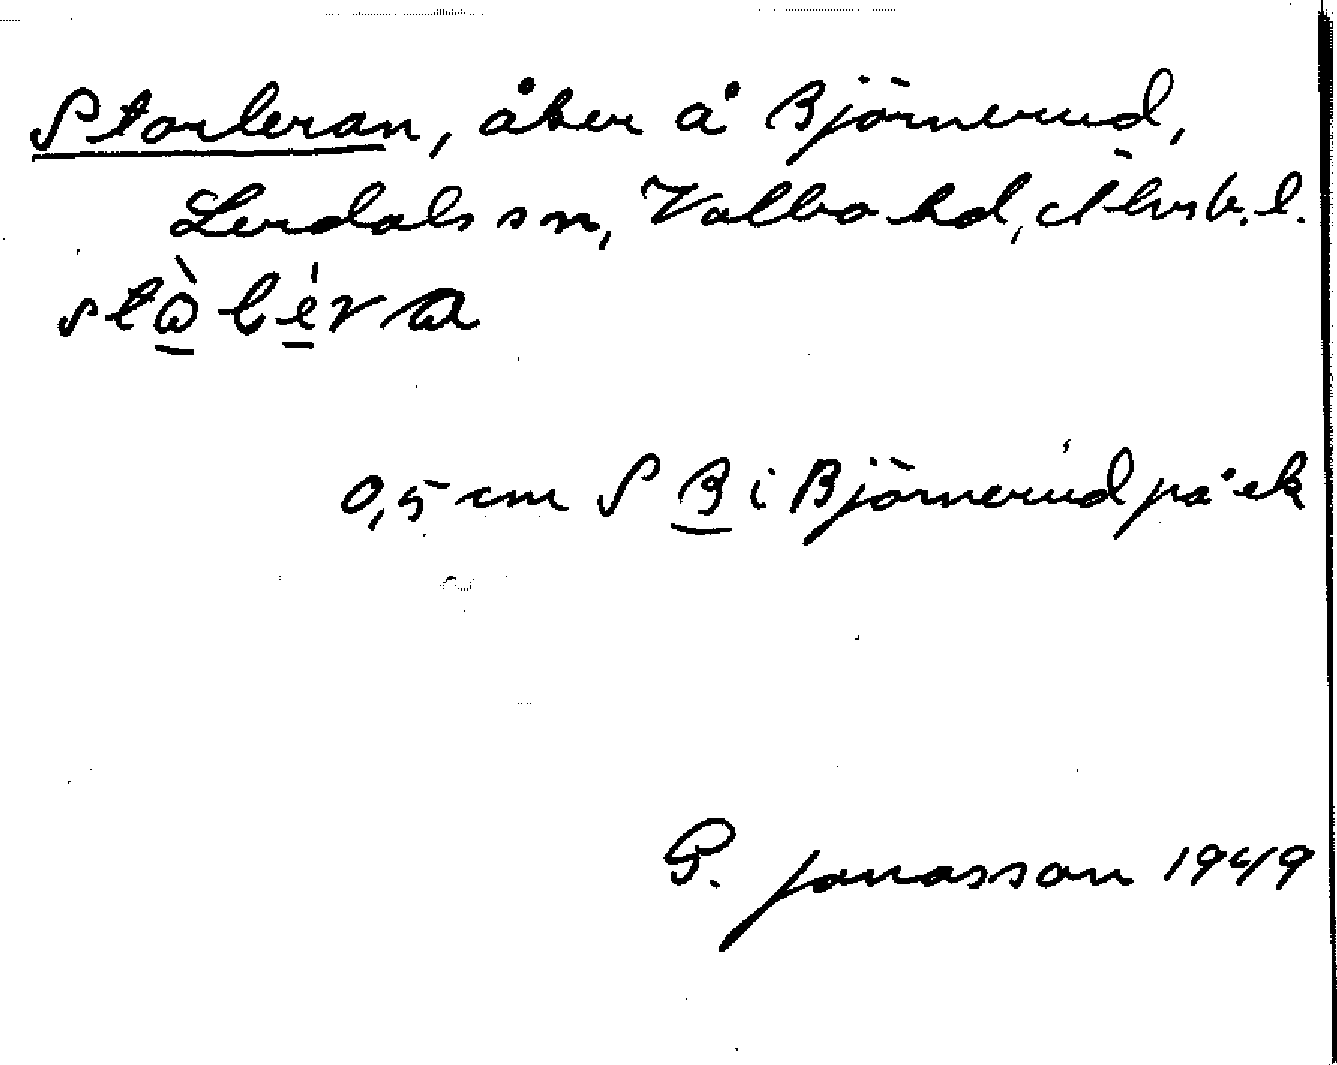 Storleran, åker å Björnerud,
Lerdals sn, Valbo hd, Älvsb. l.
stὼlérα
0,5 cm S B i Björnerud på ek
G. Jonasson 1949